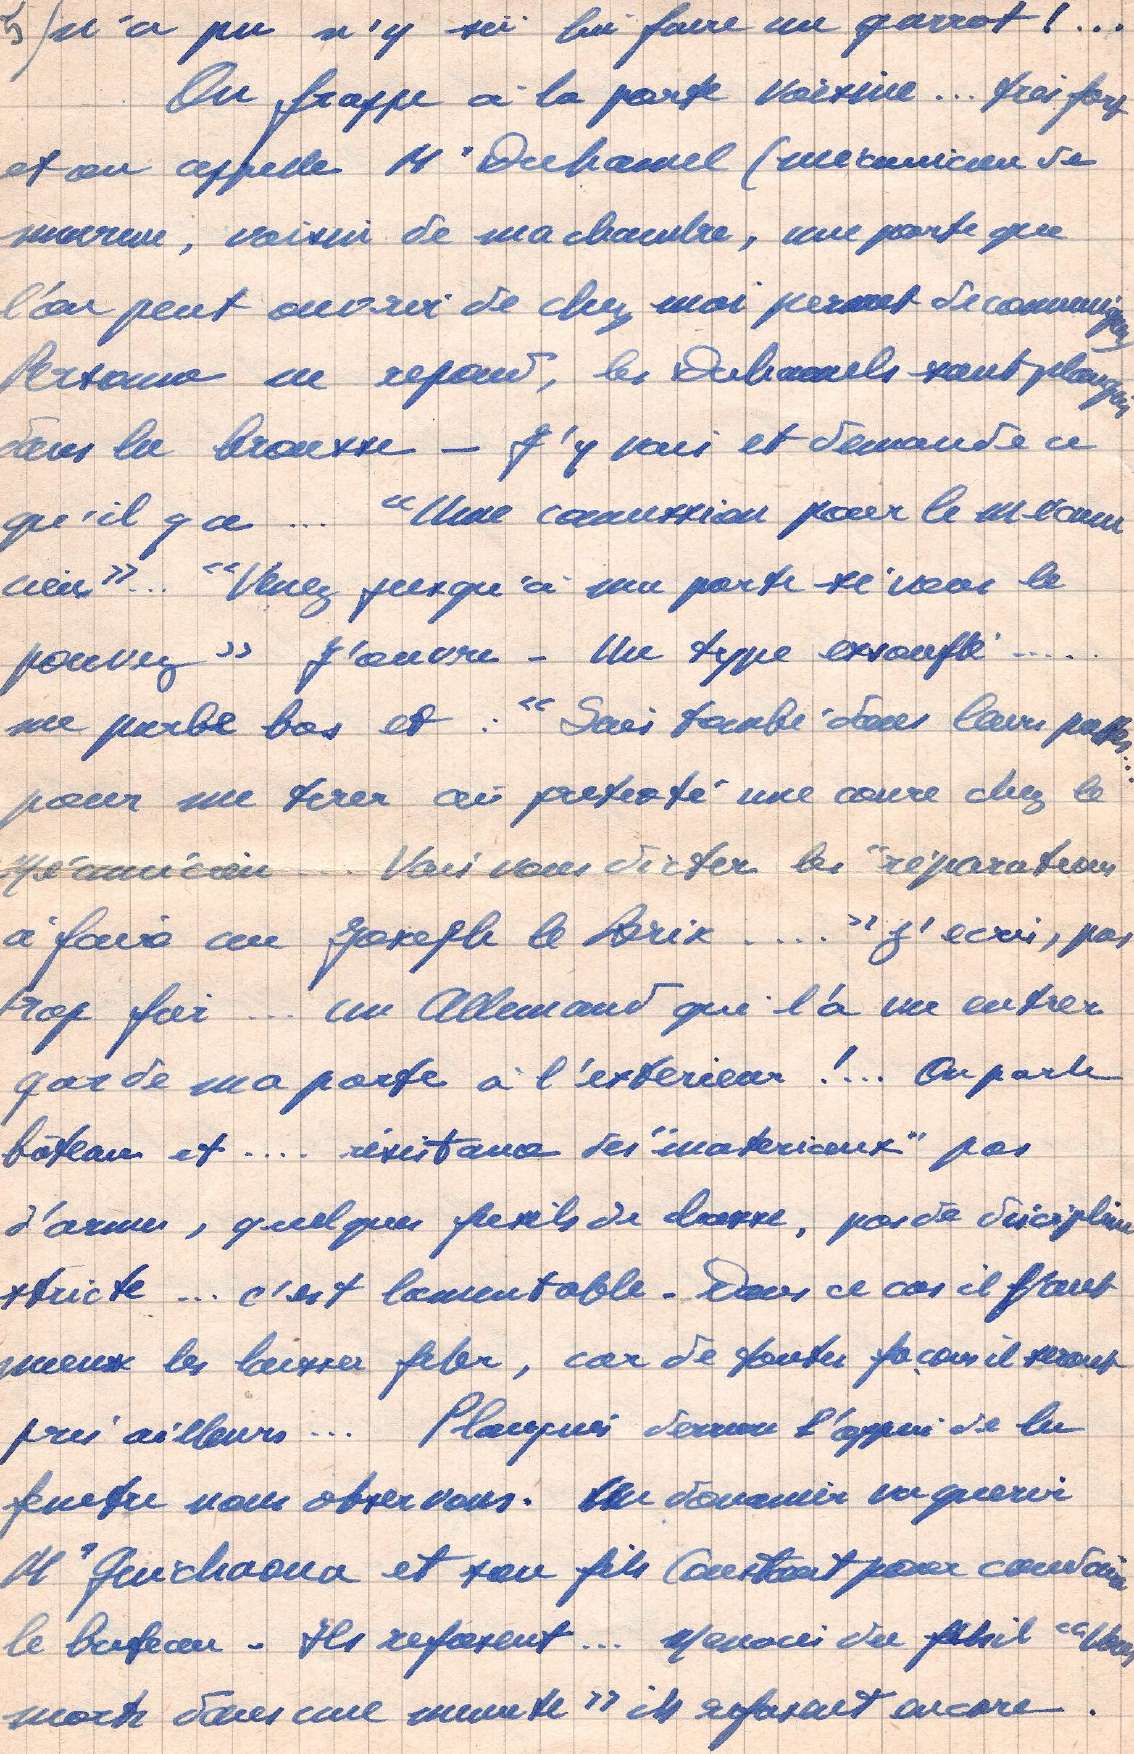 5/ n'a pu n'y sû lui faire un garrot !...
On frappe à la porte voisine ... très fort
et on appelle Mr Duhamel (mécanicien de
marine, voisin de ma chambre, une porte que
l'on peut ouvrir de chez moi permet de communiquer
Personne ne repond, les Duhamels sont planqués
dans la brousse — J'y vais et demande ce
qu'il y a ... "Une commission pour le mécani
cien"... "Venez jusqu'à ma porte si vous le
pouvez" J'ouvre - Un type essouflé .....
me parle bas et : "Suis tombé dans leurs pattes...
pour me tirer ai pretexté une course chez le
Mécanicien ... Vais vous dicter les "réparations
à faire au Joseph le Brix ...." J'ecris, pas
trop fier ... un Allemand qui l'a vu entrer
garde ma porte à l'exterieur !... On parle
bâteau et .... résistance des "materiaux" pas
d'armes, quelques fusils de chasse, pas de discipline
stricte ... c'est lamentable - Dans ce cas il faut
mieux les laisser filer, car de toutes façons il seront
pris ailleurs ... Planqués derrière l'appui de la
fenetre nous observons. Un douanier va querir
Mr Guichaoua et son fils Constant pour conduire
le bateau - Ils refusent ... Menacés du fusil "Vous
morts dans une minute" ils refusent encore.